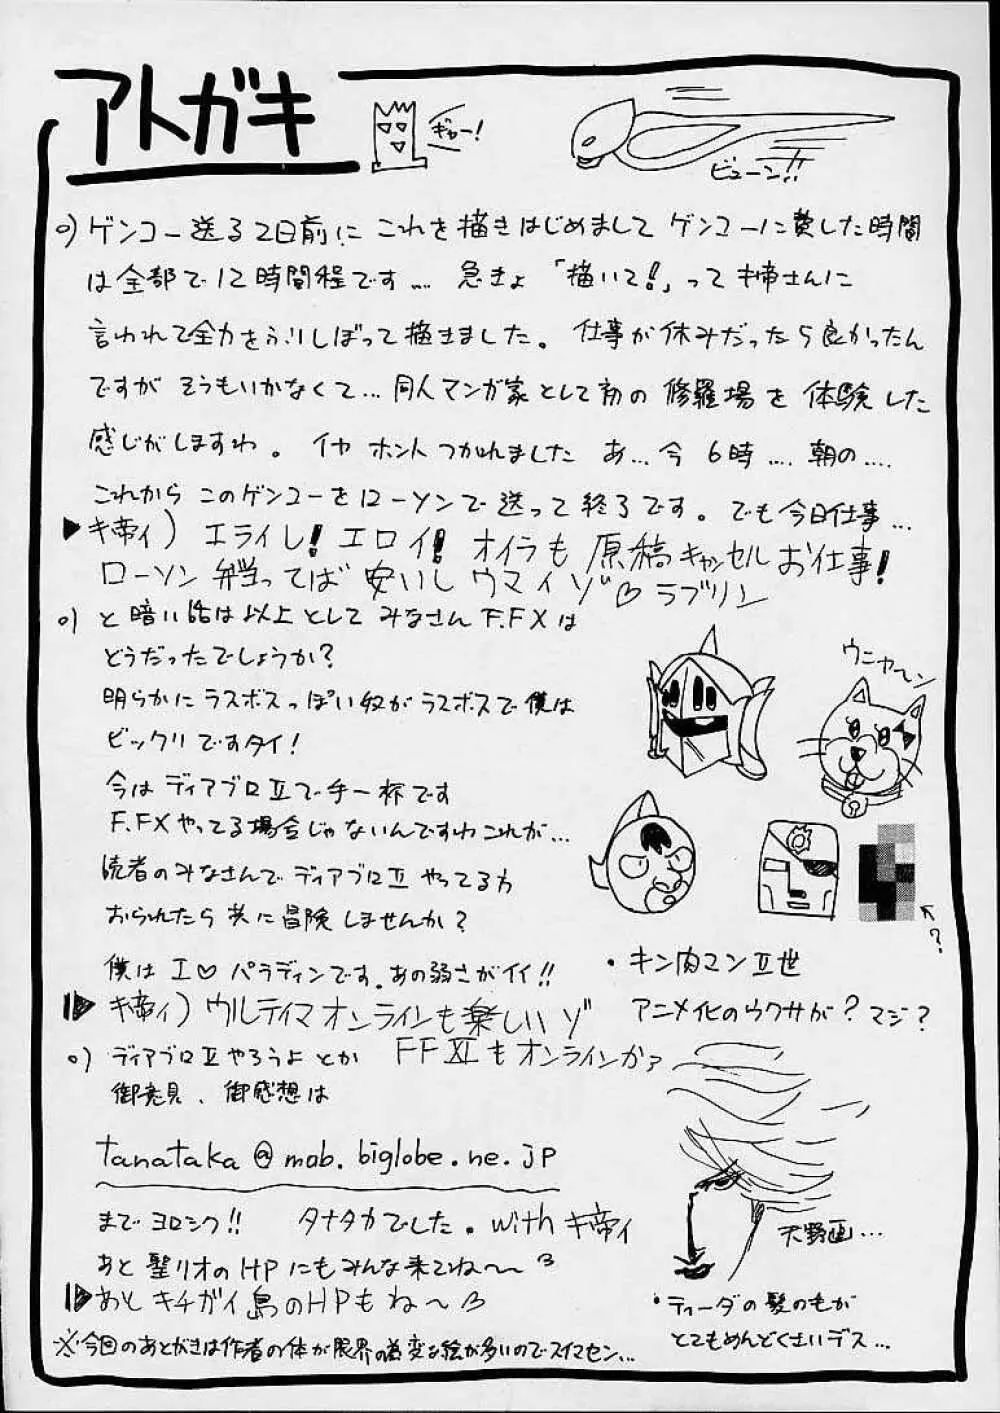 アトガキ
ギャー!
ビューン!!
○)ゲンコー送る2日前にこれを描きはじめましてゲンコーに費した時間
は全部で12時間程です…. 急きょ「描いて!」ってキ帝さんに
言われて全力をふりしぼって描きました。仕事が休みだったら良かったん
ですがそうもいかなくて…同人マンガ家として初の修羅場を体験した
感じがしますわ。イヤ ホントつかれました あ…今6時….朝の….
これからこのゲンコーをローソンで送って終了です。でも今日仕事…
▶キ帝ィ)エライし!エロイ!オイラも原稿キャンセルお仕事!
ローソン弁当ってば安いしウマイゾ♡ラブリン
○)と暗い話は以上としてみなさんF.FXは
どうだったでしょうか?
明らかにラスボスっぽい奴がラスボスで僕は
ビックリですタイ!
今はディアブロⅡで手一杯です
F.FXやってる場合じゃないんですわこれが…
読者のみなさんでディアブロⅡやってる方
おられたら共に冒険しませんか?
僕はI♡パラディンです。あの弱さがイイ!!
▶キ帝ィ)ウルティマオンラインも楽しいゾ
○)ディアブロⅡやろうよとか FFXIもオンラインかァ
御意見、御感想は
tanataka@mob.biglobe.ne.jp
までヨロシク!! タナタカでした。withキ帝ィ
あと聖リオのHPにもみんな来てね〜〜
▶あとキチガイ島のHPもね〜
※今回のあとがきは作者の体が限界の為変な絵が多いのでスイマセン…
ウニャ〜ン
?
・キン肉マンⅡ世
アニメ化のウワサが?マジ?
天野画…
・ティーダの髪の毛が
とてもめんどくさいデス…